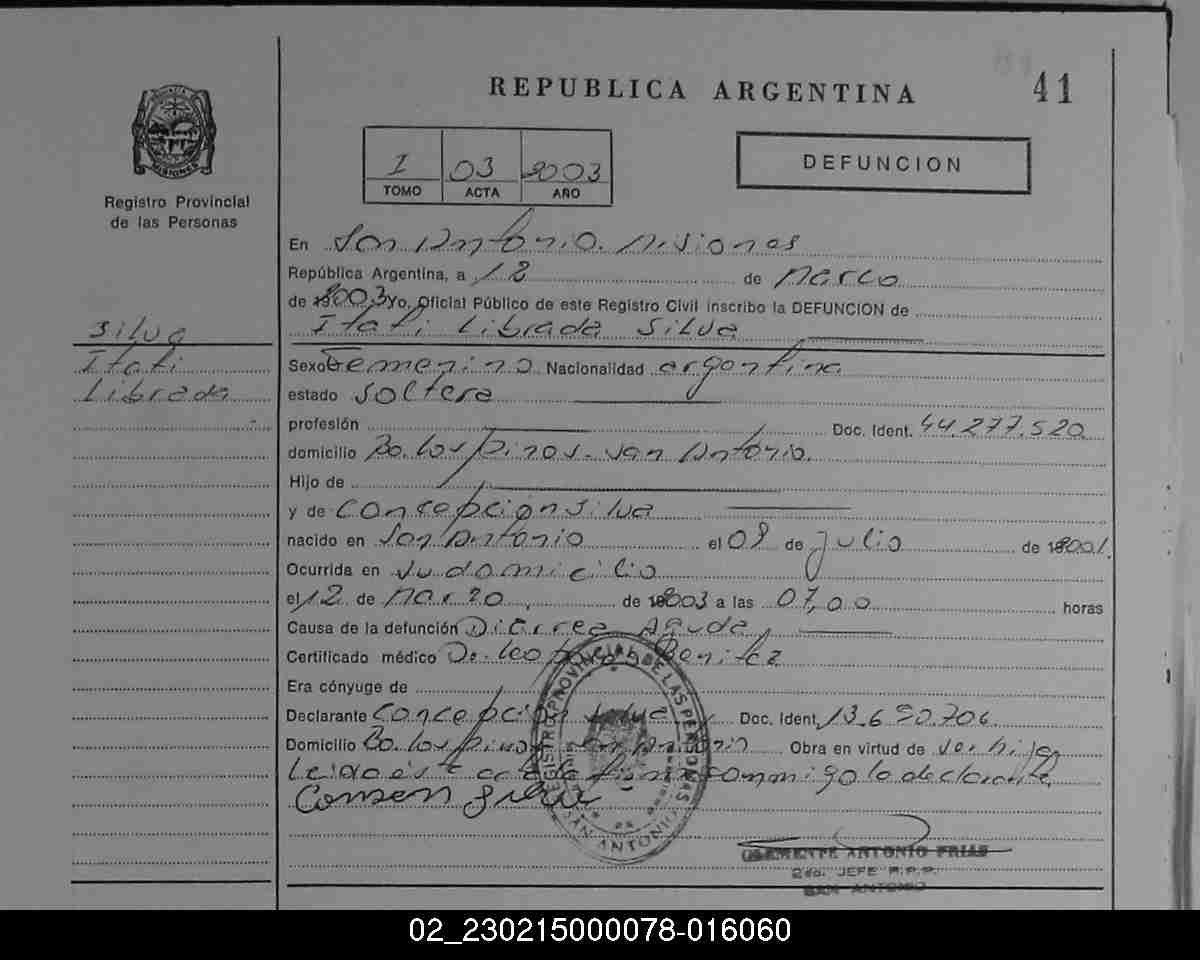 REPUBLICA ARGENTINA
41
MISIONES
Registro Provincial
de las Personas
I 03 2003
TOMO ACTA AÑO
DEFUNCION
En San Antonio. Misiones
República Argentina, a 12 de Marzo
de 2003 Yo, Oficial Público de este Registro Civil inscribo la DEFUNCION de
Itati Librada Silva
Silva
Itati
Librada
Sexo Femenino Nacionalidad argentina
estado Soltera
profesión Doc. Ident. 44.277.520
domicilio Bo. Los Pinos - San Antonio.
Hijo de
y de Concepción Silva
nacido en San Antonio el 08 de Julio de 2001.
Ocurrida en su domicilio
el 12 de Marzo de 2003 a las 07,00 horas
Causa de la defunción Diarrea Aguda
Certificado médico Benitez
Era cónyuge de
Declarante Concepción Silva Doc. Ident. 13.690.706.
Domicilio Bo. Los Pinos San Antonio Obra en virtud de ser hija
Leido ésta acta la firma conmigo la declarante
REGISTRO PROVINCIAL DE LAS PERSONAS
SAN ANTONIO
CLEMENTE ANTONIO FRIAS
2do. JEFE R.P.P.
SAN ANTONIO
02_230215000078-016060